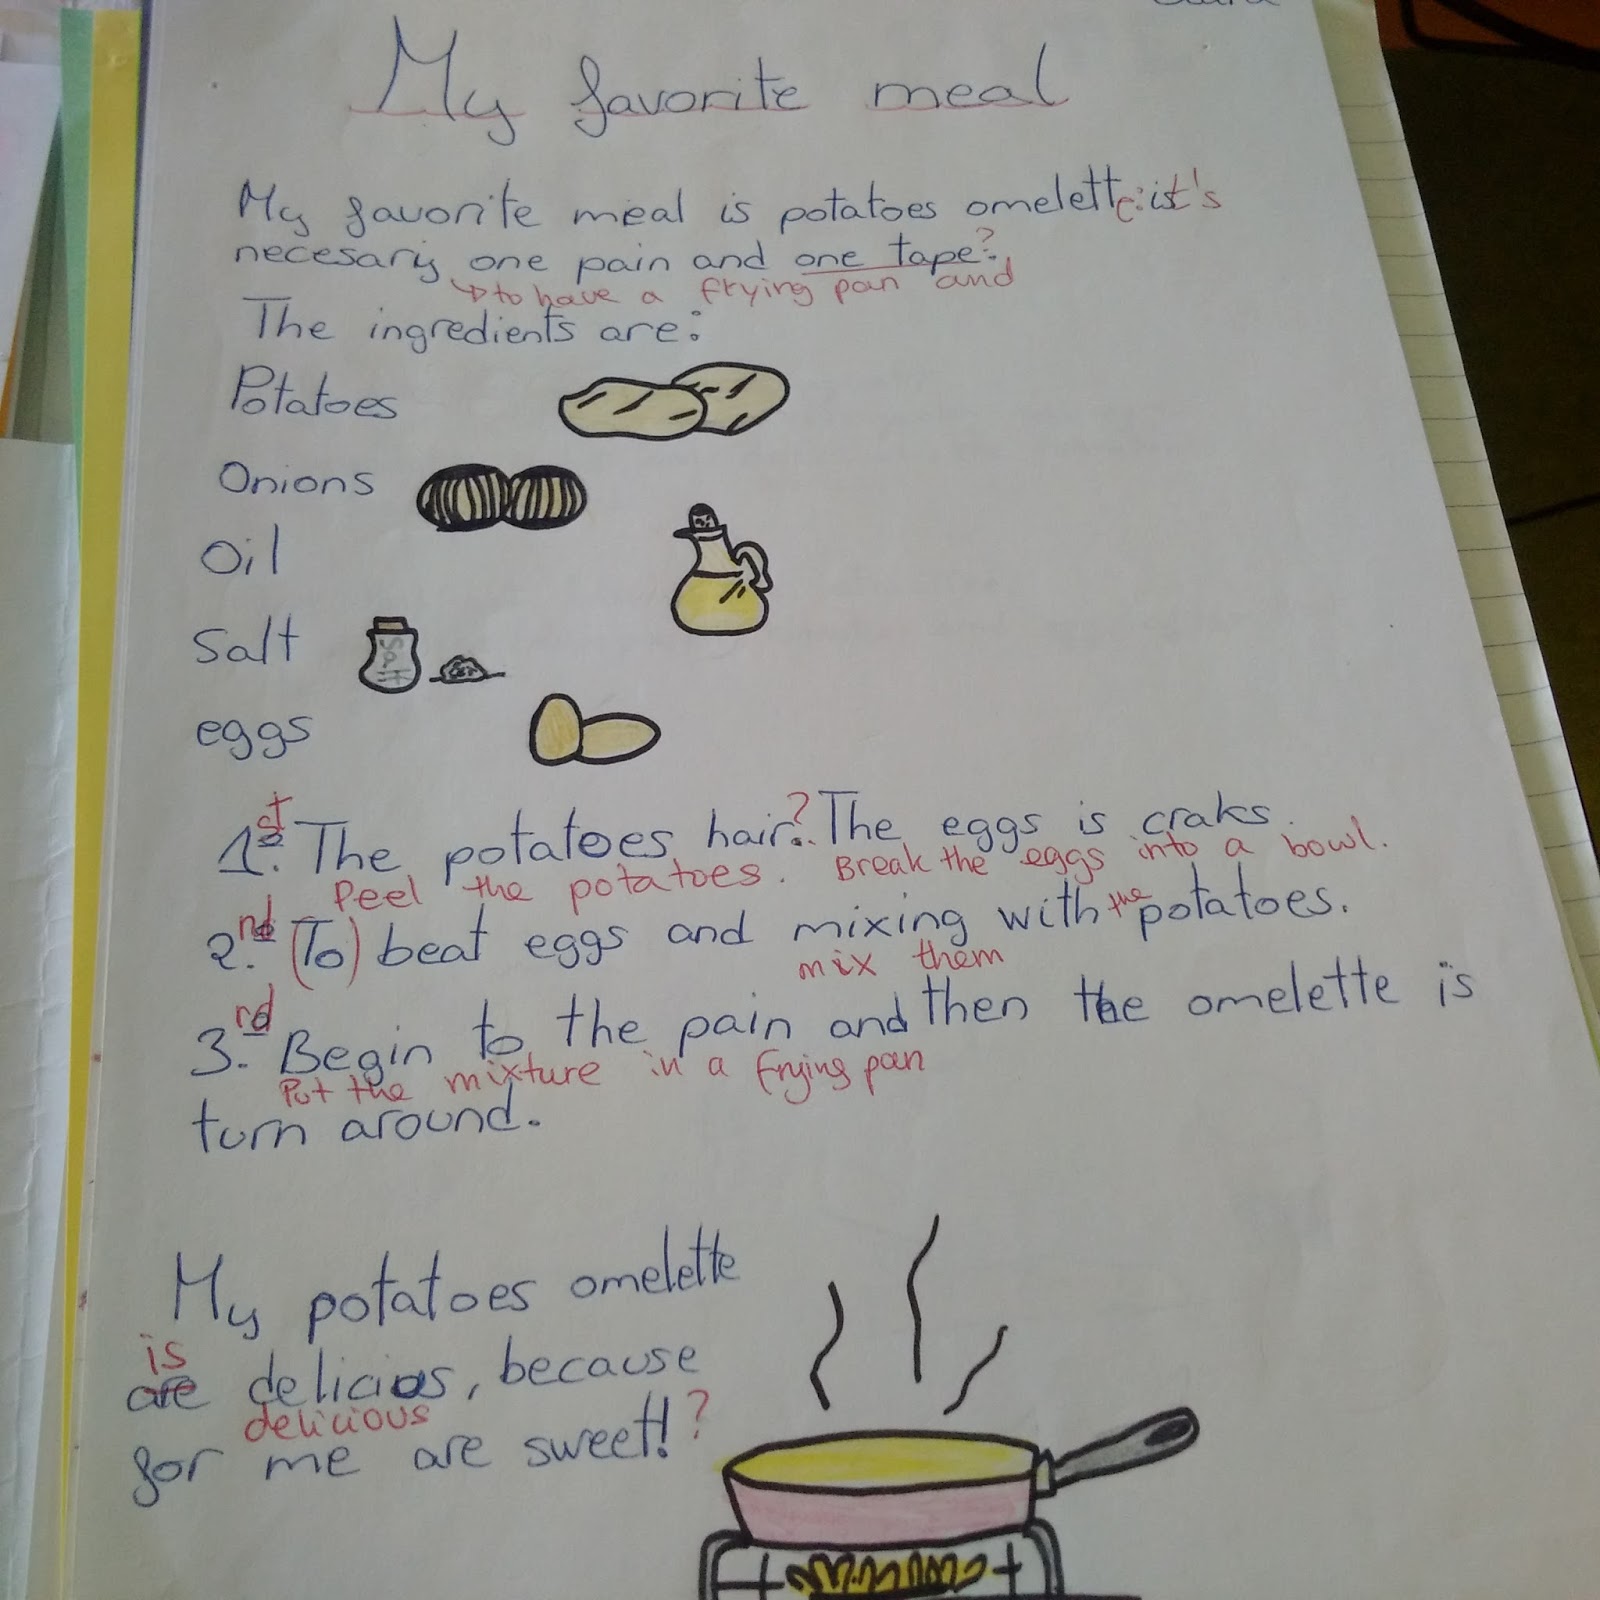 My favorite meal
My favorite meal is potatoes omelette: it's
necesary one pain and one tape?
↳ to have a frying pan and
The ingredients are:
Potatoes
Onions
Oil
Salt
Salt
eggs
1st. The potatoes hair?. The eggs is craks.
Peel the potatoes. Break the eggs into a bowl.
2nd. (To) beat eggs and mixing with the potatoes.
mix them
3rd. Begin to the pain and then the omelette is
Put the mixture in a frying pan
turn around.
My potatoes omelette
is
are delicios, because
delicious
for me are sweet! ?